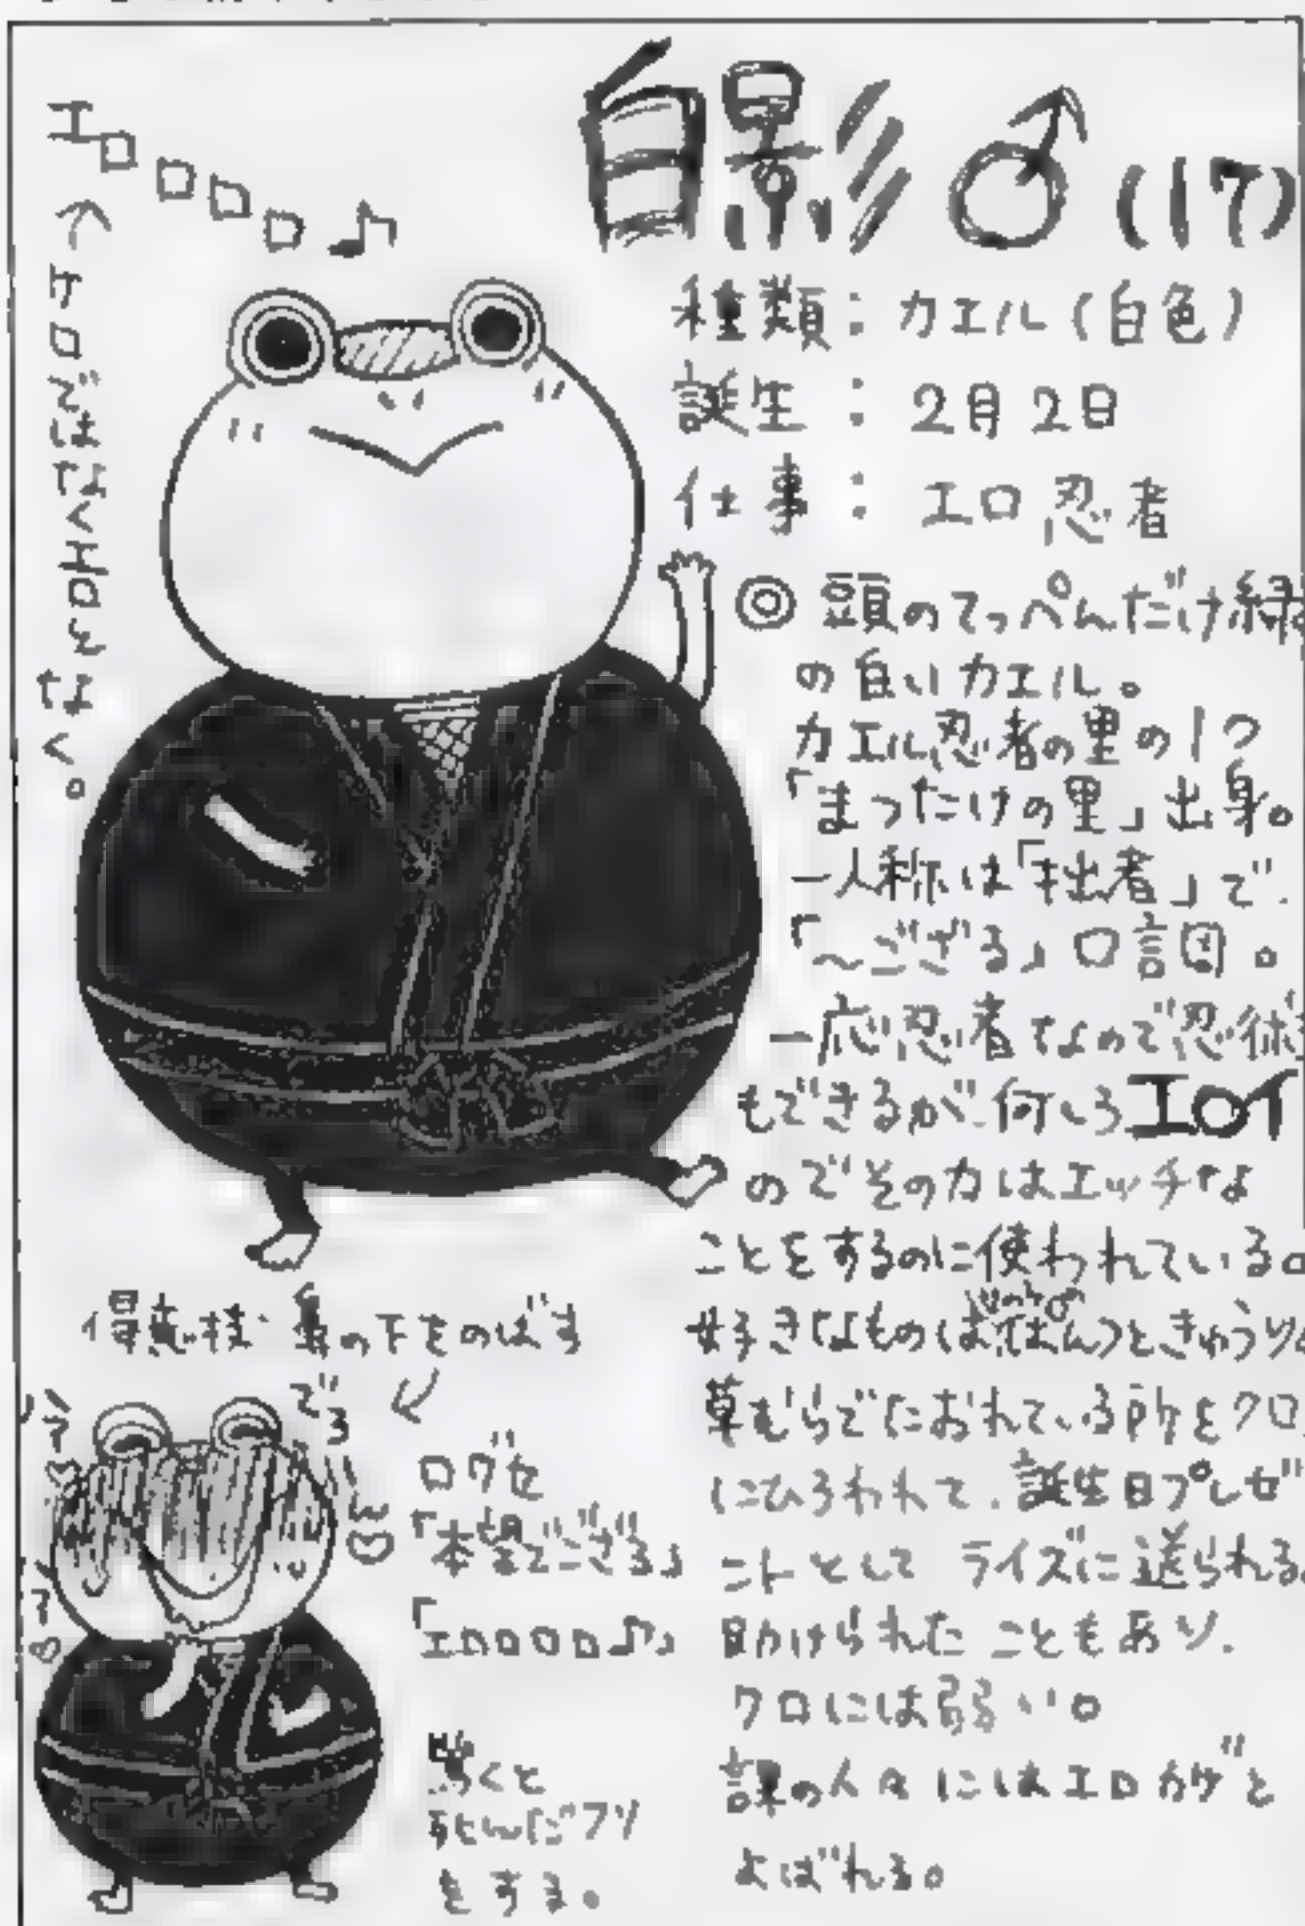 白影♂(17)
種類:カエル(白色)
誕生:2月2日
仕事:エロ忍者
◎頭のてっぺんだけ緑
の白いカエル。
カエル忍者の里の1つ
「まつたけの里」出身。
一人称は「拙者」で、
「〜ござる」口調。
一応忍者なので忍術
もできるが、何しろエロイ
のでその力はエッチな
ことをするのに使われている。
好きなものはときゅうり。
草むらでたおれている所をクロ
にひろわれて、誕生日プレゼ
ントとしてライズに送られる。
助けられたこともあり、
クロには弱い。
課の人々にはエロカゲと
よばれる。
エロロロロ♪
↑ケロではなくエロとなく。
得意技・鼻の下をのばす
でろ
口グセ
「本望でござる」
「エロロロロ♪」
驚くと
死んだフリ
をする。